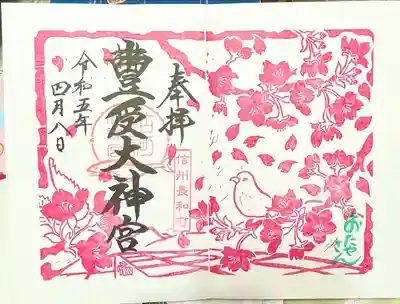 奉拝
信州長和町
豊受大神宮
令和五年
四月八日
おたやさん